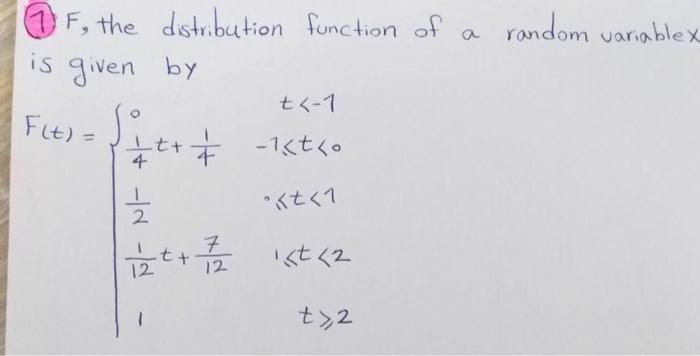 ① F, the distribution function of a random variable x
is given by
F(t) = { 0 t<-1
1/4 t + 1/4 -1⩽t<0
1/2 0⩽t<1
1/12 t + 7/12 1⩽t<2
1 t⩾2